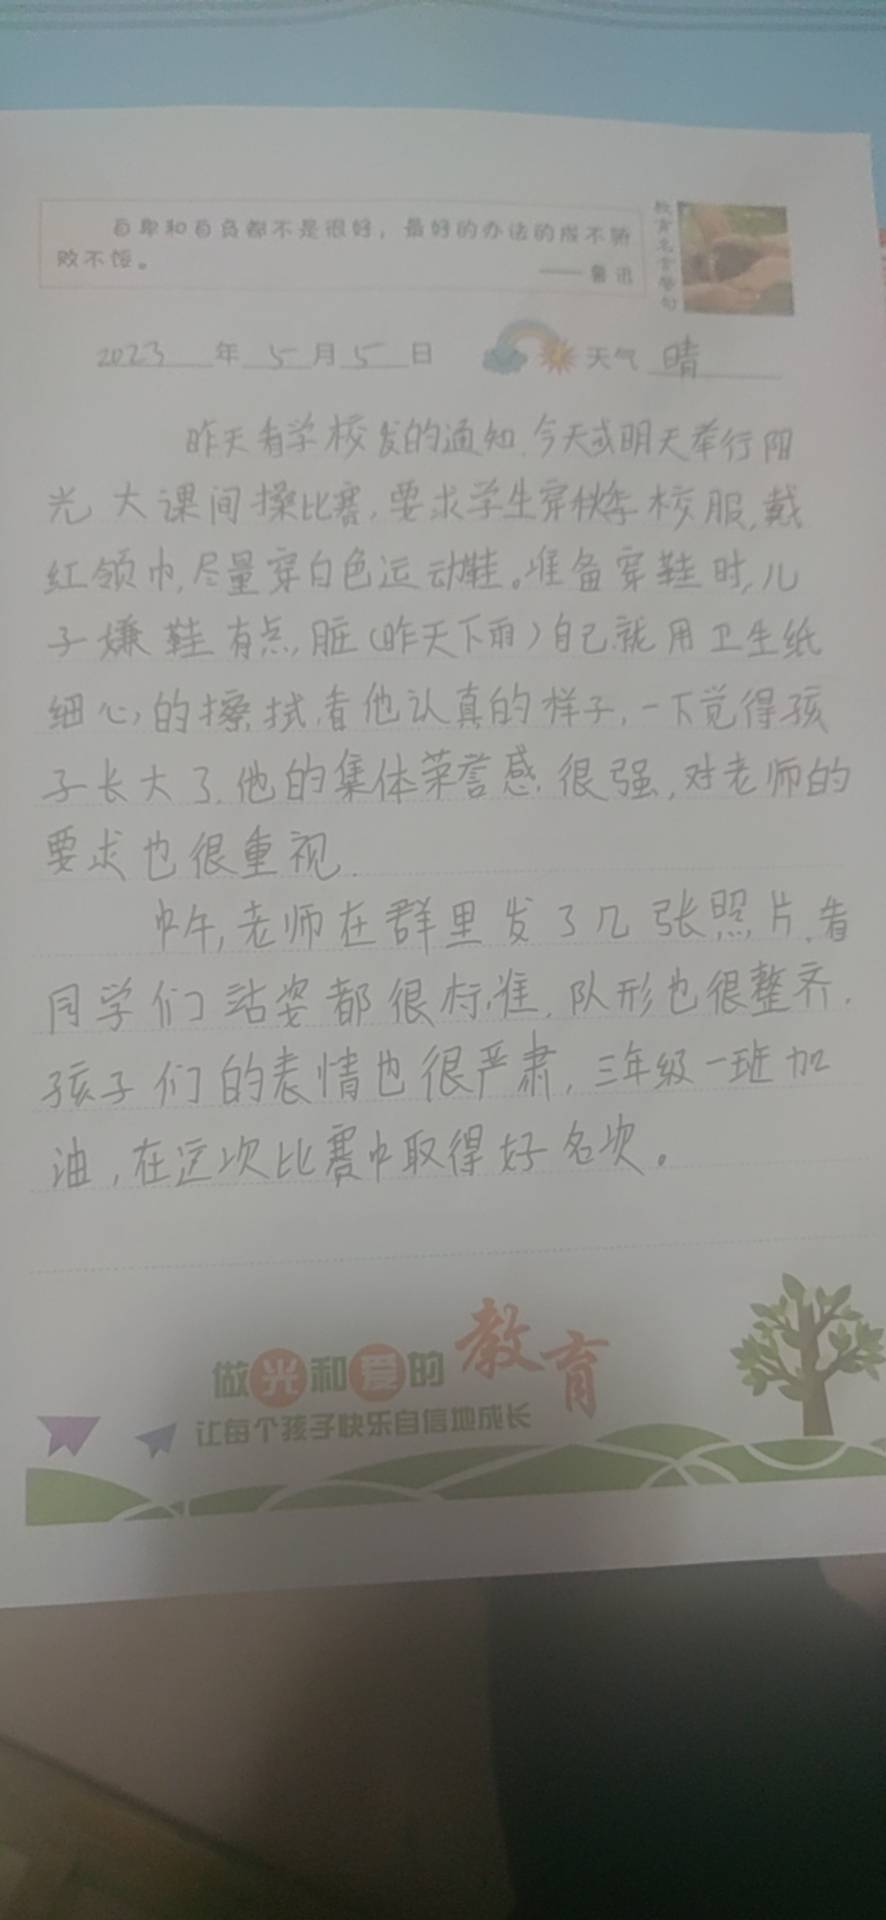 自卑和自负都不是很好,最好的办法的成不骄
败不馁。
—— 鲁迅
教育名言警句
2023 年 5 月 5 日 天气 晴
昨天看学校发的通知,今天或明天举行阳
光大课间操比赛,要求学生穿秋季校服,戴
红领巾,尽量穿白色运动鞋。准备穿鞋时,儿
子嫌鞋有点脏(昨天下雨)自己就用卫生纸
细心的擦拭,看他认真的样子,一下觉得孩
子长大了,他的集体荣誉感很强,对老师的
要求也很重视.
中午,老师在群里发了几张照片,看
同学们站姿都很标准,队形也很整齐,
孩子们的表情也很严肃,三年级一班加
油,在这次比赛中取得好名次。
做光和爱的教育
让每个孩子快乐自信地成长